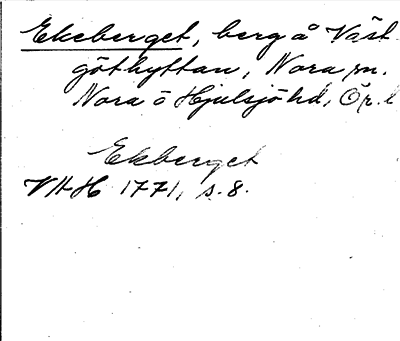 Ekeberget, berg å Väst-
göthyttan, Nora sn.
Nora ö Hjulsjö hd, Ör.l
Ekberget
VHH 1771, s. 8.